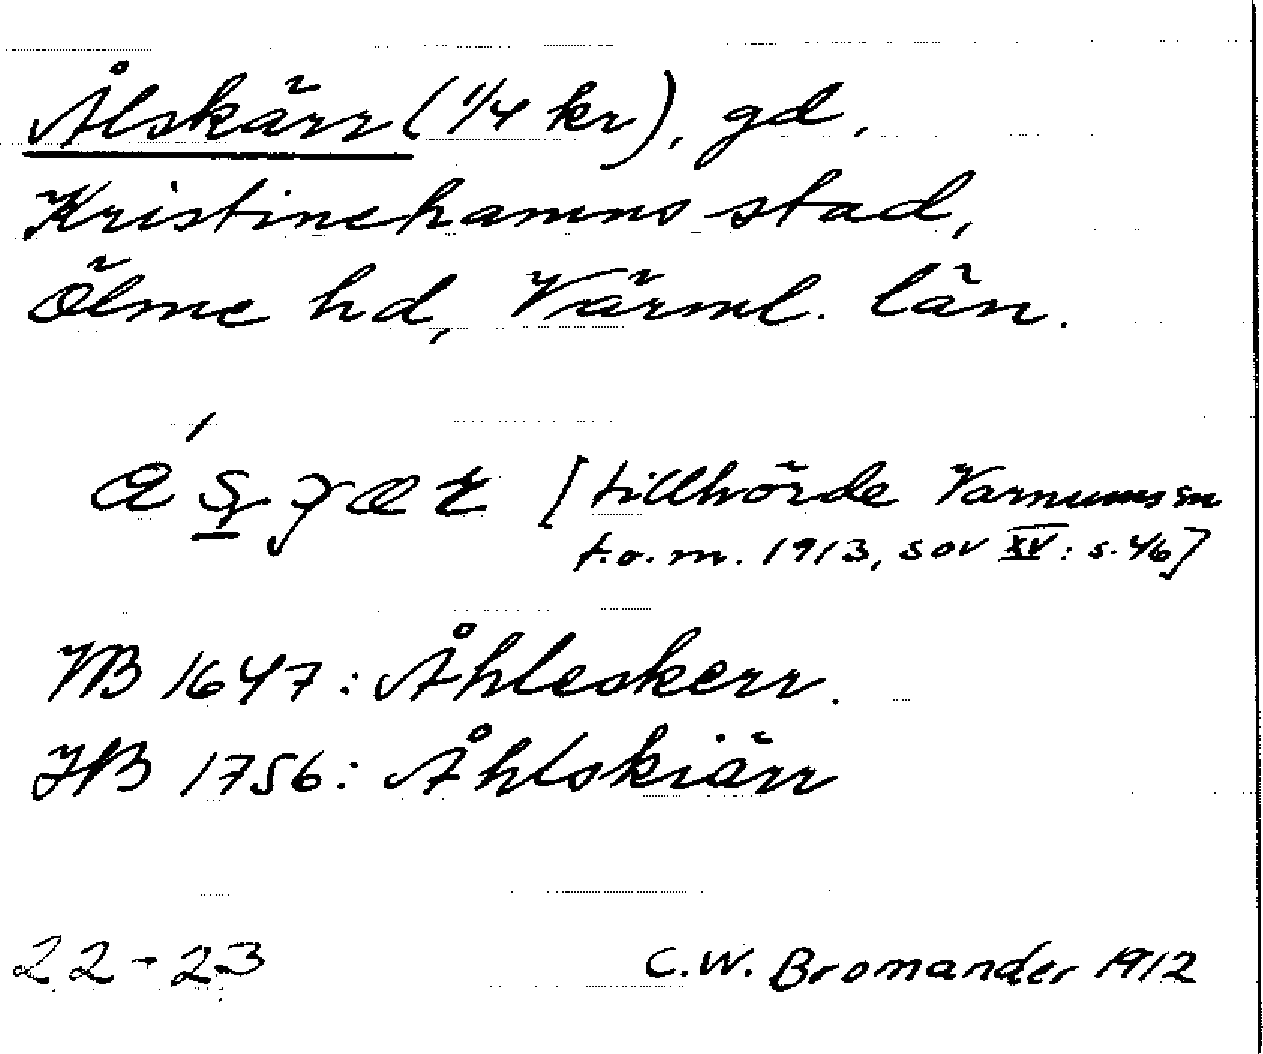 Ålskärr (1/4 kr), gd.
Kristinehamns stad,
Ölme hd, Värml. län.
[tillhörde Varnums sn
t.o.m. 1913, SOV XV: s. 46]
VB 1647: Åhleskerr.
JB 1756: Åhlskiärr
22-23
C.W. Bromander 1912